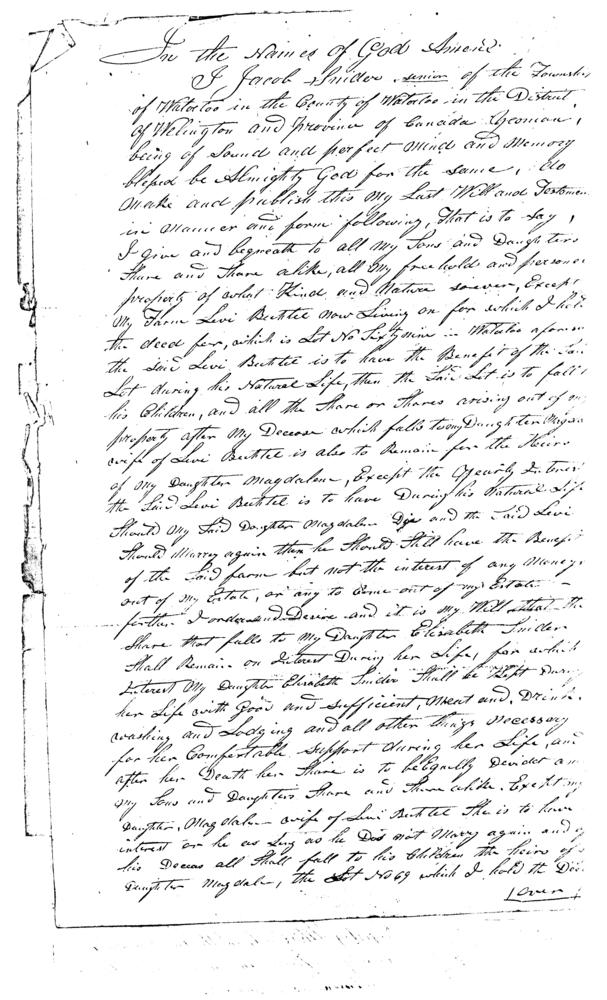 In the Names of God Amen.
I Jacob Snider senior of the Township
of Waterloo in the County of Waterloo in the District
of Welington and province of Canada Yeoman,
being of Sound and perfect mind and Memory
blessed be Almighty God for the same, do
make and publish this My Last Will and Testamen
in manner and form following, That is to say,
I give and bequeath to all my Sons and Daughters
Share and Share alike, all my freehold and persone
property of what Kind and Nature soever, Except
My Farm Levi Bechtel now Living on for which I hold
the deed for, which is Lot No Sixty nine in Waterloo aforem
the Said Levi Bechtel is to have the Benefit of the Said
Lot during his Natural Life, then the Said Lot is to fall
his Children, and all the Share or Shares arising out of my
property after My Decease which falls to my Daughter
wife of Levi Bechtel is also to Remain for the Heirs
of my Daughter Magdalene, Except the Yearly Interest
the Said Levi Bechtel is to have During his Natural Life
Should My Said Daughter Magdalen Die and the Said Levi
Should Marrey again then he Should Still have the Benefit
of the Said farm but not the interest of any Money
out of my Estate, or any to Come out of my Estate –
further I order and Desire and it is my Will that the
Share that falls to My Daughter Elisabeth Snider
Shall Remain on Interest During her Life, for which
Interest My Daughter Elisabeth Snider Shall be Kept During
her Life with Good and sufficient, Meat and, Drink.
washing and Lodging and all other things necessary
for her Comfortable support during her Life, and
after her Death her Share is to be Eqully Devided
my Sons and Daughters Share and Share alike. Except my
Daughter, Magdalen wife of Levi Bechtel She is to have
interest or he as Long as he Dos not Marry again and
his Deceas all Shall fall to his Children the heirs of
Daughter Magdalen, the Lot No 69 which I hold the Deed
over